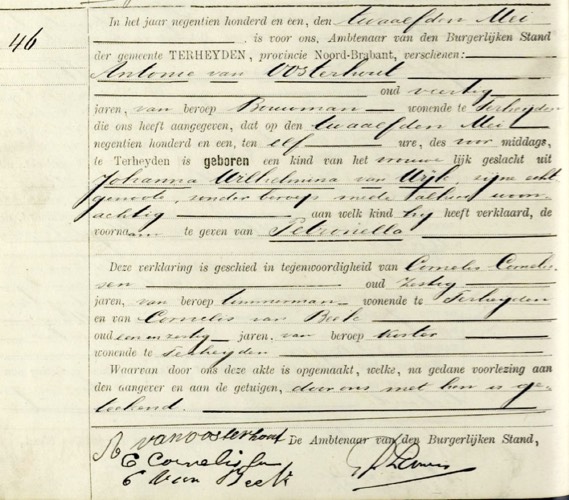 46
In het jaar negentien honderd en een, den twaalfden Mei
is voor ons, Ambtenaar van den Burgerlijken Stand
der gemeente TERHEYDEN, provincie Noord-Brabant, verschenen:
Antonie van Oosterhout
oud veertig
jaren, van beroep Bouwman wonende te Terheyden
die ons heeft aangegeven, dat op den twaalfden Mei
negentien honderd en een, ten elf ure, des voor middags,
te Terheyden is geboren een kind van het vrouwe lijk geslacht uit
Johanna Wilhelmina van Wijk, zijne echt
genoote, zonder beroep, mede alhier woon
achtig aan welk kind hij heeft verklaard, de
voornaam te geven van Petronella
Deze verklaring is geschied in tegenwoordigheid van Cornelis Cornelis
sen oud zestig
jaren, van beroep timmerman wonende te Terheyden
en van Cornelis van Beek
oud een en zestig jaren, van beroep Koster
wonende te Terheyden
Waarvan door ons deze akte is opgemaakt, welke, na gedane voorlezing aan
den aangever en aan de getuigen, door ons met hen is ge
teekend.
A van oosterhout De Ambtenaar van den Burgerlijken Stand,
C Cornelissen
C van Beek